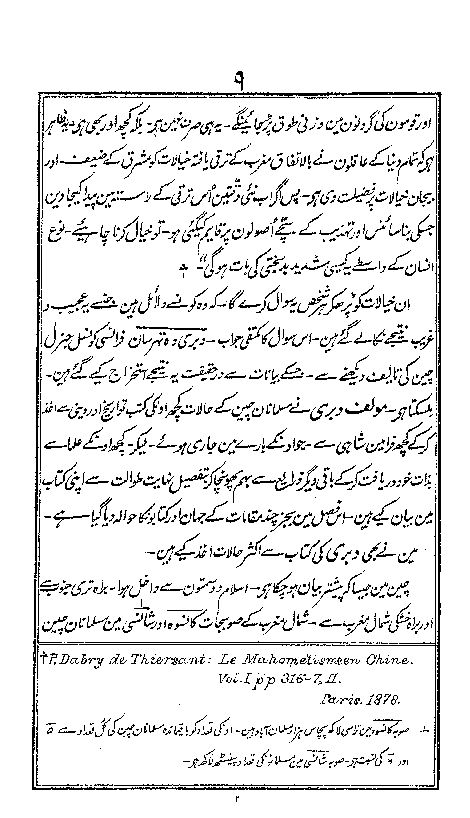 ۹
اور قومون کی گردنون مین وزنی طوق پڑجائینگے - یہی صرف نہین ہم - بلکہ کچھ اور بھی ہو - یہ ظاہر
ہو کہ تمام دنیا کے عاقلون نے بالاتفاق مغرب کے ترقی یافتہ خیالات کو مشرق کے ضعیف - اور
بیجان خیالات پر فضیلت دی ہو - پس اگر اب نئی دقتین اُس ترقی کے راستہ مین پیدا کیجاوین
جسکی بنا سائنس اور تہذیب کے سچے اُصولون پر قایم کیگئی ہو - تو خیال کرنا چاہیے - نوع
انسان کے واسطے کیسی شدید بدبختی کی بات ہوگی"
ان خیالات کو پڑھکر ہر شخص یہ سوال کرے گا - کہ وہ کونسے دلائل ہین جنسے یہ عجیب و
غریب نتیجے نکالے گئے ہین - اس سوال کا مکتفی جواب - دبری دہ تھرسان فرانسیسی کونسل جنرل
چین کی تالیف دیکھنے سے - جسکے بیانات سے درحقیقت یہ نتیجے استخراج کیے گئے ہین -
ملسکتا ہو - مولف دبری نے مسلمانان چین کے حالات کچھ اونکی کتب تواریخ اور دینی سے اخذ
کرکے کچھ فرامین شاہی سے - جو اونکے بارے مین جاری ہوئے - لیکر - کچھ اونکے علما سے
بذات خود دریافت کرکے باقی دیگر ذرائع سے بہم پہونچا کر بتفصیل نہایت طوالت سے اپنی کتاب
مین بیان کیے ہین - اس فصل مین بجز چند مقامات کے جہان اور کتابونکا حوالہ دیا گیا ہے -
مین نے بھی دبری کی کتاب سے اکثر حالات اخذ کیے ہین -
چین مین جیسا کہ پیشتر بیان ہوچکا ہو - اسلام دو سمتون سے داخل ہوا - براہ تری جنوب سے
اور براہ خشکی شمال مغرب سے - شمال مغرب کے صوبجات کانسوہ اور شانسی مین مسلمانان چین
† P. Dabry de Thiersant: Le Mahometismeen Chine.
Vol. I pp 316-7, II.
Paris. 1878.
صوبہ کانسوہ مین تراسی لاکھ پچاس ہزار مسلمان آباد ہین - اونکی تعداد کو باشندہ مسلمانان چین کی کل تعداد سے ۵
اور کی نسبت ہو - صوبہ شانسی مین مسلمانونکی تعداد پینسٹھ لاکھ ہو -
۲